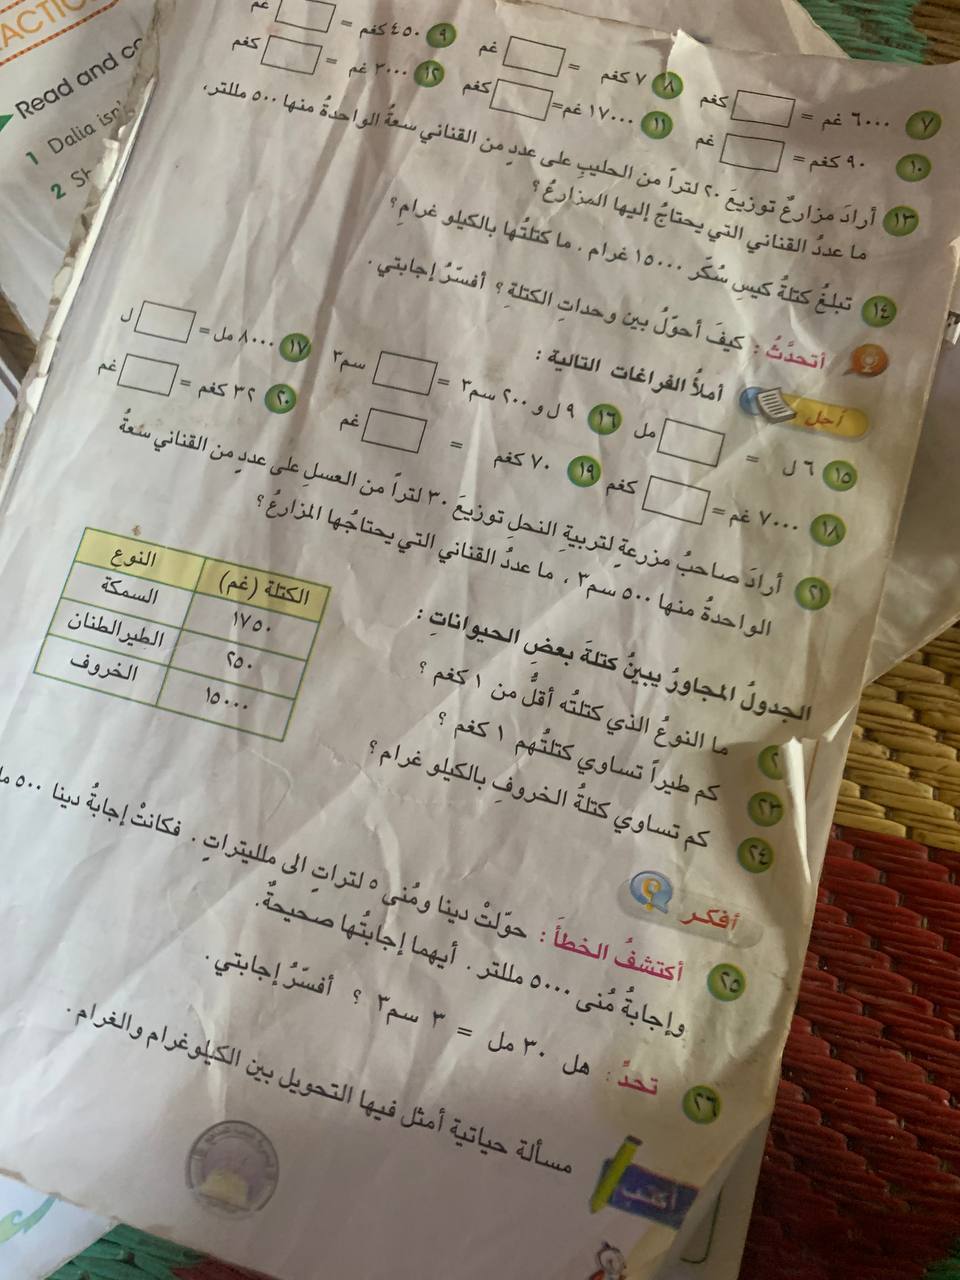 ACTIC
Read and co
1 Dalia isn's
2 Sh
٧ ٦٠٠٠ غم = كغم
٨ ٧ كغم = غم
٩ ٤٥٠ كغم = غم
١٠ ٩٠ كغم = غم
١١ ١٧٠٠٠ غم = كغم
١٢ ٣٠٠٠ غم = كغم
١٣ أرادَ مزارعٌ توزيعَ ٢٠ لتراً من الحليبِ على عددٍ من القناني سعةُ الواحدةُ منها ٥٠٠ مللتر،
ما عددُ القناني التي يحتاجُ إليها المزارعُ؟
١٤ تبلغُ كتلةُ كيسِ سُكّر ١٥٠٠٠ غرام . ما كتلتُها بالكيلو غرامِ؟
أتحدَّثُ : كيفَ أحوّلُ بين وحداتِ الكتلةِ ؟ أفسّرُ إجابتي .
أحل أملأُ الفراغات التالية :
١٥ ٦ ل = مل
١٦ ٩ ل و ٢٠٠ سم٣ = سم٣
١٧ ٨٠٠٠ مل = ل
١٨ ٧٠٠٠ غم = كغم
١٩ ٧٠ كغم = غم
٢٠ ٣٢ كغم = غم
٢١ أرادَ صاحبُ مزرعةٍ لتربيةِ النحلِ توزيعَ ٣٠ لتراً من العسلِ على عددٍ من القناني سعةُ
الواحدةُ منها ٥٠٠ سم٣ ، ما عددُ القناني التي يحتاجُها المزارعُ ؟
الجدولُ المجاورُ يبينُ كتلةَ بعضِ الحيواناتِ :
النوع الكتلة (غم)
السمكة ١٧٥٠
الطيرالطنان ٢٥٠
الخروف ١٥٠٠٠
٢ ما النوعُ الذي كتلتُه أقلُّ من ١ كغم ؟
٢٣ كم طيراً تساوي كتلتُهم ١ كغم ؟
٢٤ كم تساوي كتلةُ الخروفِ بالكيلو غرام ؟
أفكر
٢٥ أكتشفُ الخطأَ : حوّلتْ دينا ومُنى ٥ لتراتٍ الى ملليتراتٍ . فكانتْ إجابةُ دينا ٥٠٠ م
وإجابةُ مُنى ٥٠٠٠ مللتر . أيهما إجابتُها صحيحةٌ.
٢٦ تحدٍّ : هل ٣٠ مل = ٣ سم٣ ؟ أفسّرُ إجابتي .
أكتب مسألة حياتية أمثل فيها التحويل بين الكيلوغرام والغرام .